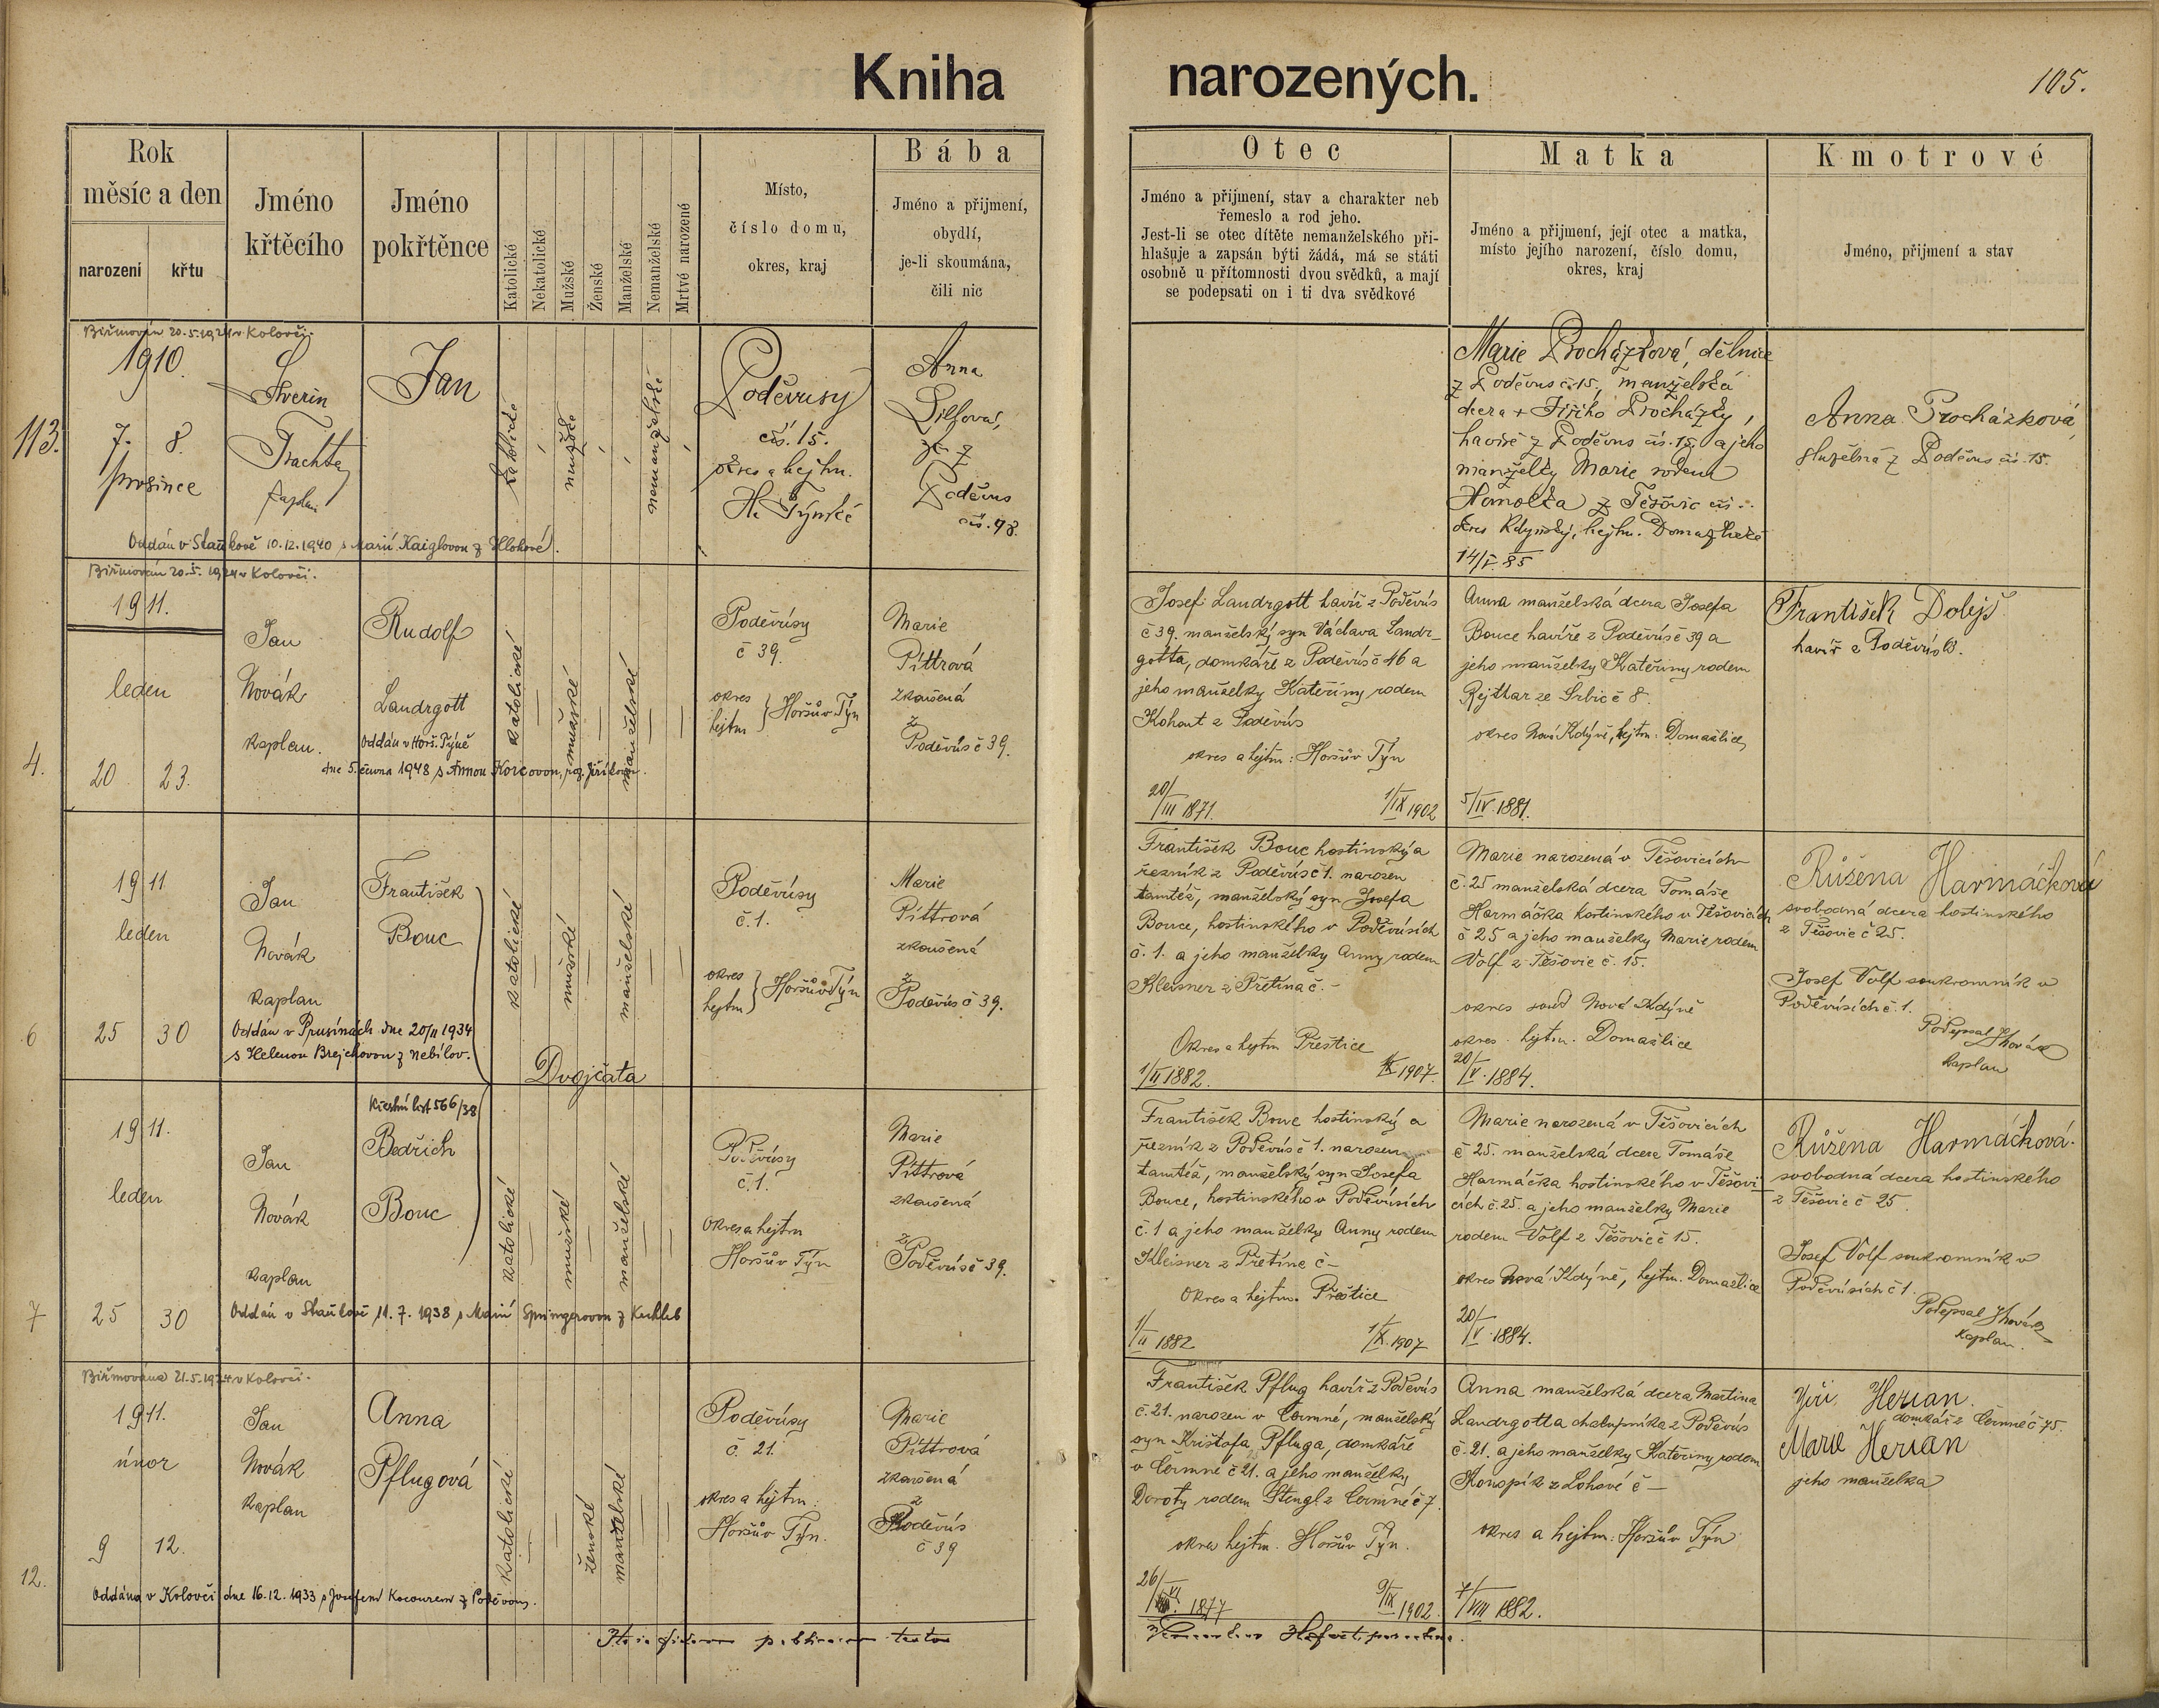 Kniha narozených.
105.
Rok
měsíc a den
narození
křtu
Jméno
křtěcího
Jméno
pokřtěnce
Katolické
Nekatolické
Mužské
Ženské
Manželské
Nemanželské
Mrtvé narozené
Místo,
číslo domu,
okres, kraj
Bába
Jméno a přijmení,
obydlí,
je-li skoumána,
čili nic
Otec
Jméno a přijmení, stav a charakter neb
řemeslo a rod jeho.
Jest-li se otec dítěte nemanželského při-
hlašuje a zapsán býti žádá, má se státi
osobně u přítomnosti dvou svědků, a mají
se podepsati on i ti dva svědkové
Matka
Jméno a přijmení, její otec a matka,
místo jejího narození, číslo domu,
okres, kraj
Kmotrové
Jméno, přijmení a stav
Biřmován 20.5.1924 v Kolovči.
113.
1910.
7. 8.
prosince
Severin
Trachta
kaplan
Jan
katolické
mužské
nemanželské
Poděvusy
čís. 15.
okres a hejtm.
H. Týnské
Anna
z
Poděvus
čís. 48.
Oddán v Staňkově 10.12.1940 s Marií Kaiglovou z Hlohové.
Marie Procházková, dělnice
z Poděvus č. 15., manželská
dcera + Jiřího Procházky,
havíře z Poděvus čís. 15. a jeho
manželky Marie rodem
Homolka z Těšovic čís. -.
okres Kdynský, hejtm. Domažlické
14/V. 85
Anna Procházková,
služebná z Poděvus čís. 15.
Biřmován 20.5.1924 v Kolovči.
4.
1911.
leden
20 23.
Jan
Novák
kaplan.
Rudolf
Landrgott
Oddán v Horš. Týně
dne 5. června 1948 s Annou
katolické
mužské
manželské
Poděvúsy
č 39.
okres
hejtm } Horšův Týn
Marie
Pittrová
zkoušená
z
Poděvús č 39.
Josef Landrgott havíř z Poděvús
č 39. manželský syn Václava Landr-
gotta, domkáře z Poděvús č 46 a
jeho manželky Kateřiny rodem
Kohout z Poděvús
okres a hejtm: Horšův Týn
20/III 1871. 1/IX 1902
Anna manželská dcera Josefa
Bouce havíře z Poděvús č 39 a
jeho manželky Kateřiny rodem
Rejthar ze Srbic č 8.
okres Nová Kdýně, hejtm: Domažlice
5/IV. 1881.
František Dolejš
havíř z Poděvús
6
1911
leden
25 30
Jan
Novák
kaplan
František
Bouc
Oddán v Prusinách dne 20/II 1934
s Helenou Brejchovou z Nebílov.
katolické
mužské
manželské
Dvojčata
Poděvúsy
č. 1.
okres
hejtm } Horšův Týn
Marie
Pittrová
zkoušená
z
Poděvús č 39.
František Bouc hostinský a
řezník z Poděvús č 1. narozen
tamtéž, manželský syn Josefa
Bouce, hostinského v Poděvúsích
č. 1. a jeho manželky Anny rodem
Kleisner z Přetína č. -
Okres a hejtm Přeštice
1/II 1882. 1/X 1907.
Marie narozená v Těšovicích
č. 25 manželská dcera Tomáše
Harmáčka hostinského v Těšovicích
č 25 a jeho manželky Marie rodem
Volf z Těšovic č. 15.
okres soud Nová Kdýně
okres. hejtm. Domažlice
20/V. 1884.
Růžena Harmáčková
svobodná dcera hostinského
z Těšovic č 25.
Josef Volf soukromník v
Poděvúsích č. 1.
Podepsal JNovák
kaplan
7
1911.
leden
25 30
Jan
Novák
kaplan
Křestní list 566/38
Bedřich
Bouc
Oddán v Staňkově 11.7.1938 s Marií Springerovou z
katolické
mužské
manželské
Poděvúsy
č. 1.
Okres a hejtm
Horšův Týn
Marie
Pittrová
zkoušená
z
Poděvús č 39.
František Bouc hostinský a
řezník z Poděvús č 1. narozen
tamtéž, manželský syn Josefa
Bouce, hostinského v Poděvúsích
č. 1 a jeho manželky Anny rodem
Kleisner z Přetína č -
Okres a hejtm. Přeštice
1/II 1882 1/X. 1907
Marie narozená v Těšovicích
č 25. manželská dcera Tomáše
Harmáčka hostinského v Těšovi-
cích č. 25. a jeho manželky Marie
rodem Volf z Těšovic č 15.
okres Nová Kdýně, hejtm. Domažlice
20/V. 1884.
Růžena Harmáčková.
svobodná dcera hostinského
z Těšovic č 25.
Josef Volf soukromník v
Poděvúsích č 1.
Podepsal JNovák
kaplan.
Biřmována 21.5.1924 v Kolovči.
12.
1911.
únor
9 12.
Jan
Novák
kaplan
Anna
Pflugová
katolické
ženské
manželské
Poděvúsy
č. 21.
okres a hejtm:
Horšův Týn.
Marie
Pittrová
zkoušená
z
Poděvús
č 39
Oddána v Kolovči dne 16.12.1933 s Josefem Kocourem z Poděvous.
František Pflug havíř z Poděvús
č. 21. narozen v Čermné, manželský
syn Krištofa Pfluga, domkáře
v Čermné č 21. a jeho manželky
Doroty rodem Stengl z Čermné č 7.
okres hejtm. Horšův Týn.
26/VI. 1877 9/IX 1902.
Anna manželská dcera Martina
Landrgotta chalupníka z Poděvús
č. 21. a jeho manželky Kateřiny rodem
Konopík z Lohové č -
okres a hejtm: Horšův Týn
7/VIII 1882.
Jiří Herian.
domkář z Čermné č 75.
Marie Herian
jeho manželka